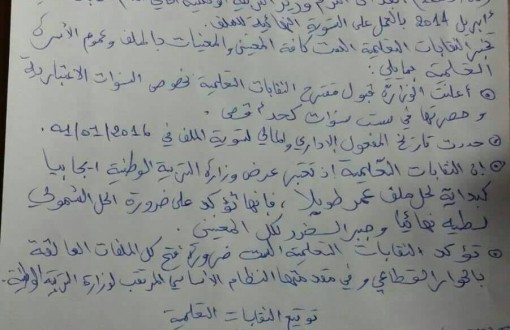 أبريل 2011 بالعمل على التسوية النهائية للملف.
تخبر النقابات التعليمية الست كافة المعنيين والمعنيات بالملف وعموم الأسرة
التعليمية بما يلي:
أعلنت الوزارة قبول مقترح النقابات التعليمية بخصوص السنوات الاعتبارية
وحصرتها في ست سنوات كحد أقصى.
حددت تاريخ المفعول الإداري والمالي لتسوية الملف في 01/01/2016.
إن النقابات التعليمية إذ تعتبر عرض وزارة التربية الوطنية ايجابيا
كبداية لحل ملف عمر طويلا، فإنها تؤكد على ضرورة الحل الشمولي
لطيه نهائيا وجبر الضرر لكل المعنيين.
تؤكد النقابات التعليمية الست ضرورة فتح كل الملفات العالقة
بالحوار القطاعي وفي مقدمتها النظام الأساسي المرتقب لوزارة التربية الوطنية.
توقيع النقابات التعليمية